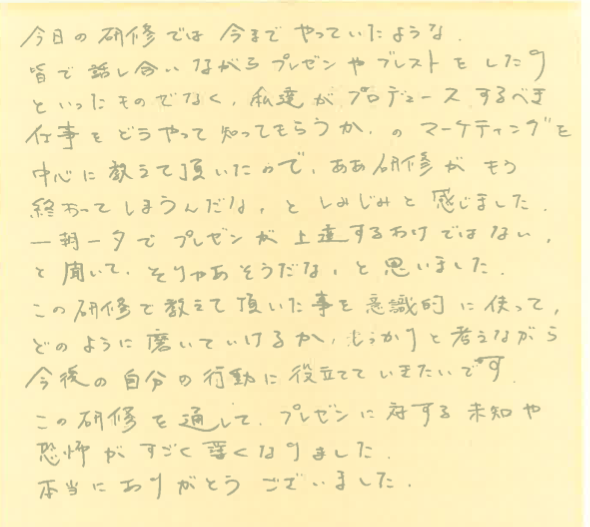 今日の研修では今までやっていたような.
皆で話し合いながらプレゼンやブレストをしたり
といったものでなく、私達がプロデュースするべき
仕事をどうやって知ってもらうか.のマーケティングを
中心に教えて頂いたので、ああ研修がもう
終わってしまうんだな、としみじみと感じました.
一朝一夕でプレゼンが上達するわけではない、
と聞いて、そりゃあそうだな、と思いました.
この研修で教えて頂いた事を意識的に使って、
どのように磨いていけるか、しっかりと考えながら
今後の自分の行動に役立てていきたいです
この研修を通して、プレゼンに対する未知や
恐怖がすごく薄くなりました.
本当にありがとうございました.